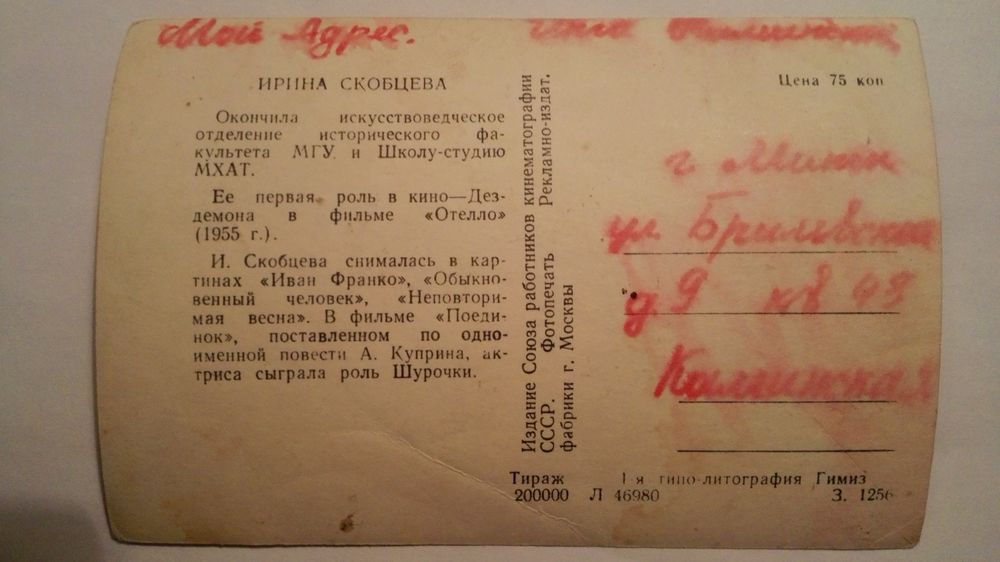 Мой Адрес.
ИРИНА СКОБЦЕВА
Окончила искусствоведческое
отделение исторического фа-
культета МГУ и Школу-студию
МХАТ.
Ее первая роль в кино—Дез-
демона в фильме «Отелло»
(1955 г.).
И. Скобцева снималась в кар-
тинах «Иван Франко», «Обыкно-
венный человек», «Неповтори-
мая весна». В фильме «Поеди-
нок», поставленном по одно-
именной повести А. Куприна, ак-
триса сыграла роль Шурочки.
Издание Союза работников кинематографии
СССР. Фотопечать Рекламно-издат.
фабрики г. Москвы
Цена 75 коп
г
ул.
д 9 кв 49
Тираж 1-я типо-литография Гимиз
200000 Л 46980 З. 1256